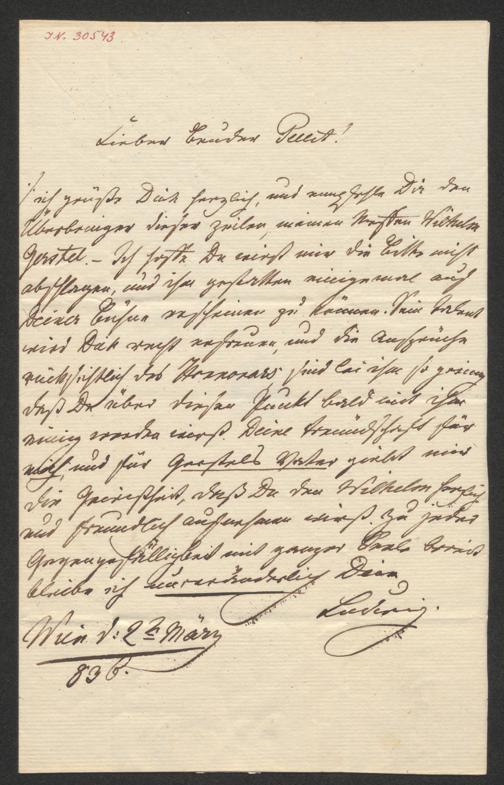 I.N. 30543
Lieber Bruder Pellet!
ich grüße Dich herzlich, und empfehle Dir den
Überbringer dieser Zeilen, meinen Neffen Wilhelm
Gerstel. – Ich hoffe Du wirst mir die Bitte nicht
abschlagen, und ihm gestatten einigemal auf
Deiner Bühne erscheinen zu können. Sein Talent
wird Dich recht erfreuen, und die Ansprüche
rücksichtlich des Honorars, sind bei ihm so gering
daß Du über diesen Punkt bald mit ihm
einig werden wirst. Deine Freundschaft für
mich, und für Gerstels Vater giebt mir
die Gewißheit, daß Du den Wilhelm herzlich
und freundlich aufnehmen wirst. Zu jeder
Gegengefälligkeit mit ganzer Seele bereit
bleibe ich unveränderlich Dein
Ludwig.
Wien d: 2t März
836.